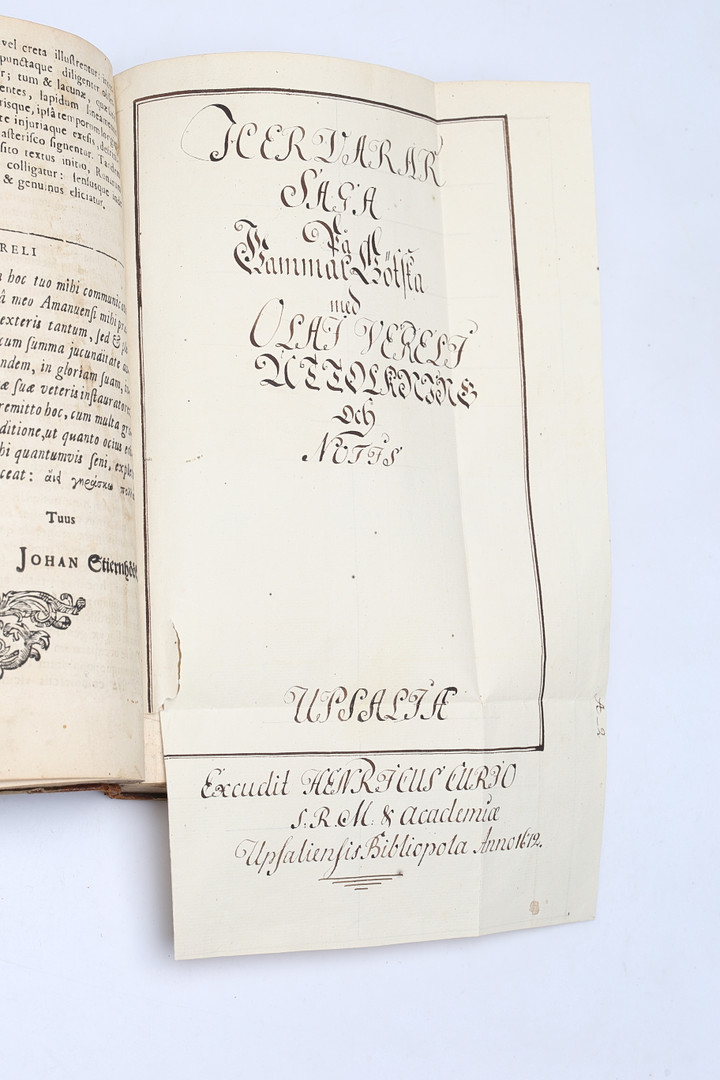 vel creta illustrentur:
punctaque diligenter
r; tum & lacunæ, quæ
entes, lapidum lineamen
risque, ipsâ temporum lon
te injuriaque exesis, de
asterisco signentur. Tandem
sito textus initio, Runarum
colligatur: sensusque inde
& genuinus eliciatur.
RELI
hoc tuo mihi communic
â meo Amanuensi mihi
exteris tantum, sed &
cum summa jucunditate
ndem, in gloriam suam,
æ suæ veteris instauratores
remitto hoc, cum multa gr
ditione, ut quanto ocius
hi quantumvis seni, exple
ceat: ἀεὶ γηράσκω πολλὰ
Tuus
JOHAN Stiernhöök
HERVARAR
SAGA
På
Gammal Götska
med
OLAI VERELI
UTTOLKNING
Och
NOTIS
UPSALIÆ
Excudit HENRICUS CURIO
S. R. M. & Academiæ
Upsaliensis Bibliopola Anno 1672.